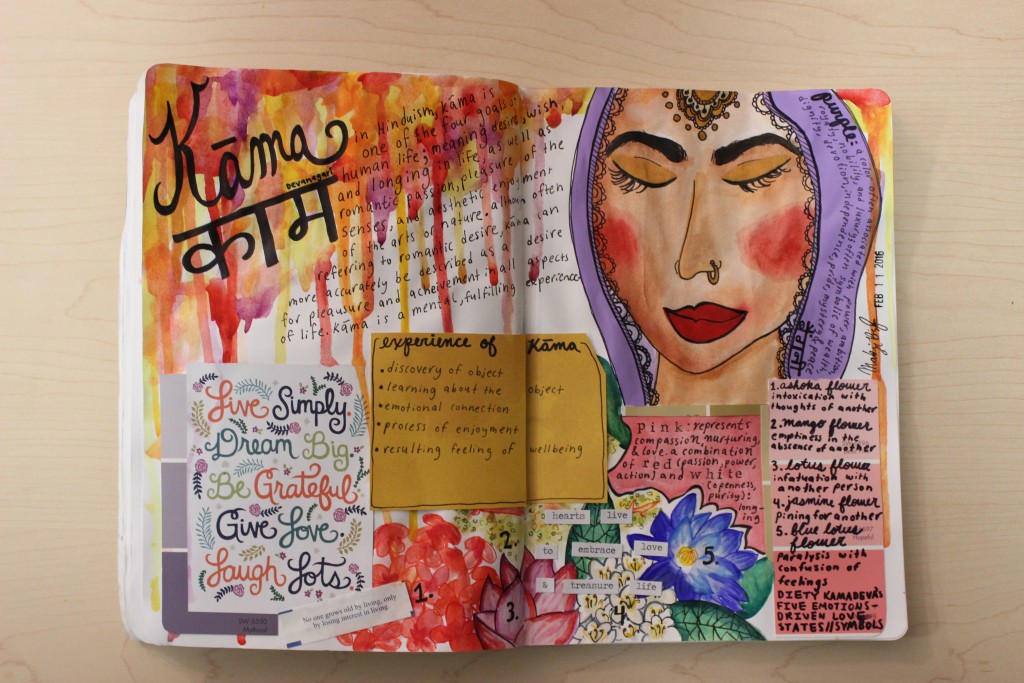 Kāma
Devanagari
काम
in Hinduism, kāma is
one of the four goals of
human life; meaning desire, wish,
and longing in life, as well as
romantic passion, pleasure of the
senses, and aesthetic enjoyment
of the arts or nature. although often
referring to romantic desire, kāma can
more accurately be described as a desire
for pleausure and acheivement in all aspects
of life. Kāma is a mental, fulfilling experience
Live Simply.
Dream Big
Be Grateful
Give Love.
Laugh Lots.
experience of Kāma
• discovery of object
• learning about the object
• emotional connection
• process of enjoyment
• resulting feeling of wellbeing
No one grows old by living, only
by losing interest in living.
1.
2.
3.
4.
5.
hearts live
to embrace love
& treasure life
purple: a
color often associated with power, ambition,
nobility, and luxury; often symbolic of wealth,
royalty, devotion, independence, pride, mystery, & peace
dignity,
FEB 11 2016
Pink: represents
compassion, nurturing,
& love. a combination
of red (passion, power,
action) and white
(openness,
purity):
long-
ing
1. ashoka flower
intoxication with
thoughts of another
2. mango flower
emptiness in the
absence of another
3. lotus flower
infatuation with
another person
4. jasmine flower
pining for another
5. blue lotus
flower
Paralysis with
confusion of
feelings
DIETY KAMADEVA'S
FIVE EMOTIONS-
DRIVEN LOVE
STATES//SYMBOLS